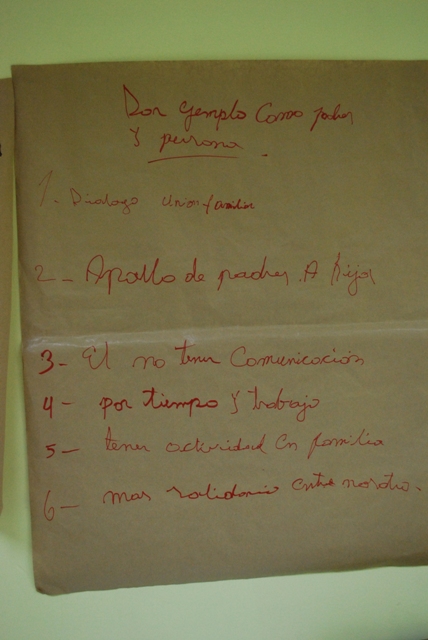 Dar ejemplo Como padres
y persona.
1. Dialogo Union familiar
2- Apollo de padres A hijos
3- El no tener Comunicación
4- por tiempo y trabajo
5- tener actividad En familia
6- mas solidario entre nosotro.